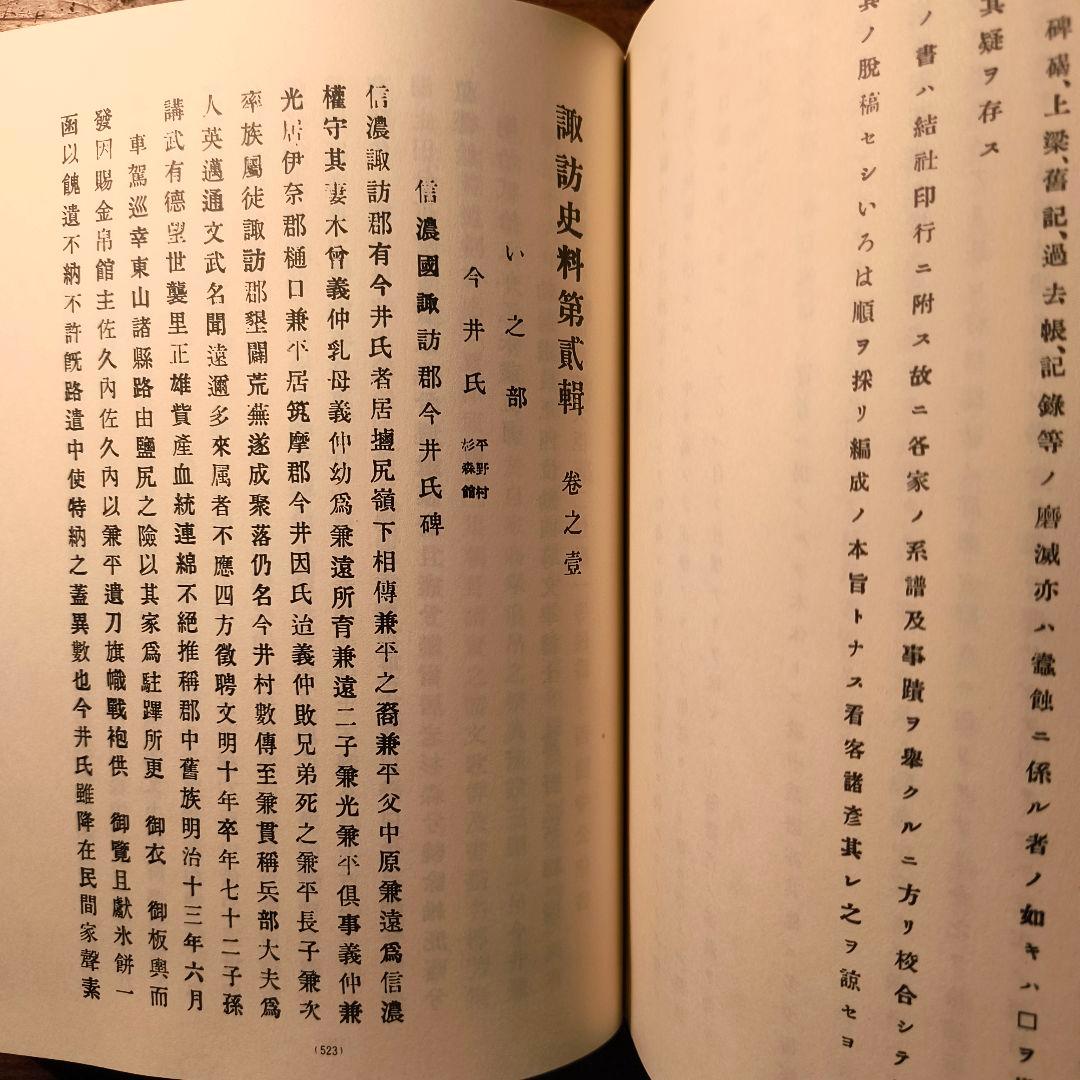 碑碣、上梁、舊記、過去帳、記錄等ノ磨滅亦ハ蠧蝕ニ係ル者ノ如キハ□ヲ
其疑ヲ存ス
ノ書ハ結社印行ニ附ス故ニ各家ノ系譜及事蹟ヲ舉クルニ方リ校合シテ
其ノ脫稿セシいろは順ヲ採リ編成ノ本旨トナス看客諸彥其レ之ヲ諒セヨ
諏訪史料第貳輯 卷之壹
い之部
今井氏 平野村杉森館
信濃國諏訪郡今井氏碑
信濃諏訪郡有今井氏者居鹽尻嶺下相傳兼平之裔兼平父中原兼遠爲信濃
權守其妻木曾義仲乳母義仲幼爲兼遠所育兼遠二子兼光兼平俱事義仲兼
光居伊奈郡樋口兼平居筑摩郡今井因氏迨義仲敗兄弟死之兼平長子兼次
率族屬徒諏訪郡墾闢荒蕪遂成聚落仍名今井村數傳至兼貫稱兵部大夫爲
人英邁通文武名聞遠邇多來属者不應四方徵聘文明十年卒年七十二子孫
講武有德望世襲里正雄貲產血統連綿不絕推稱郡中舊族明治十三年六月
車駕巡幸東山諸縣路由鹽尻之險以其家爲駐蹕所更 御衣 御板輿而
發因賜金帛館主佐久內佐久內以兼平遺刀旗幟戰袍供 御覽且獻氷餅一
函以餽遺不納不許旣路遣中使特納之蓋異數也今井氏雖降在民間家聲素
(523)